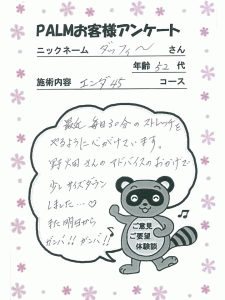 PALMお客様アンケート
ニックネーム ダッフィ〜 さん
年齢 52 代
施術内容 エンダ45 コース
最近 毎日30分のストレッチを
やるように心がけています。
野畑さんのアドバイスのおかげで
少しサイズダウン
しました…♡
また明日から
ガンバ!! ガンバ!!
ご意見
ご要望
体験談